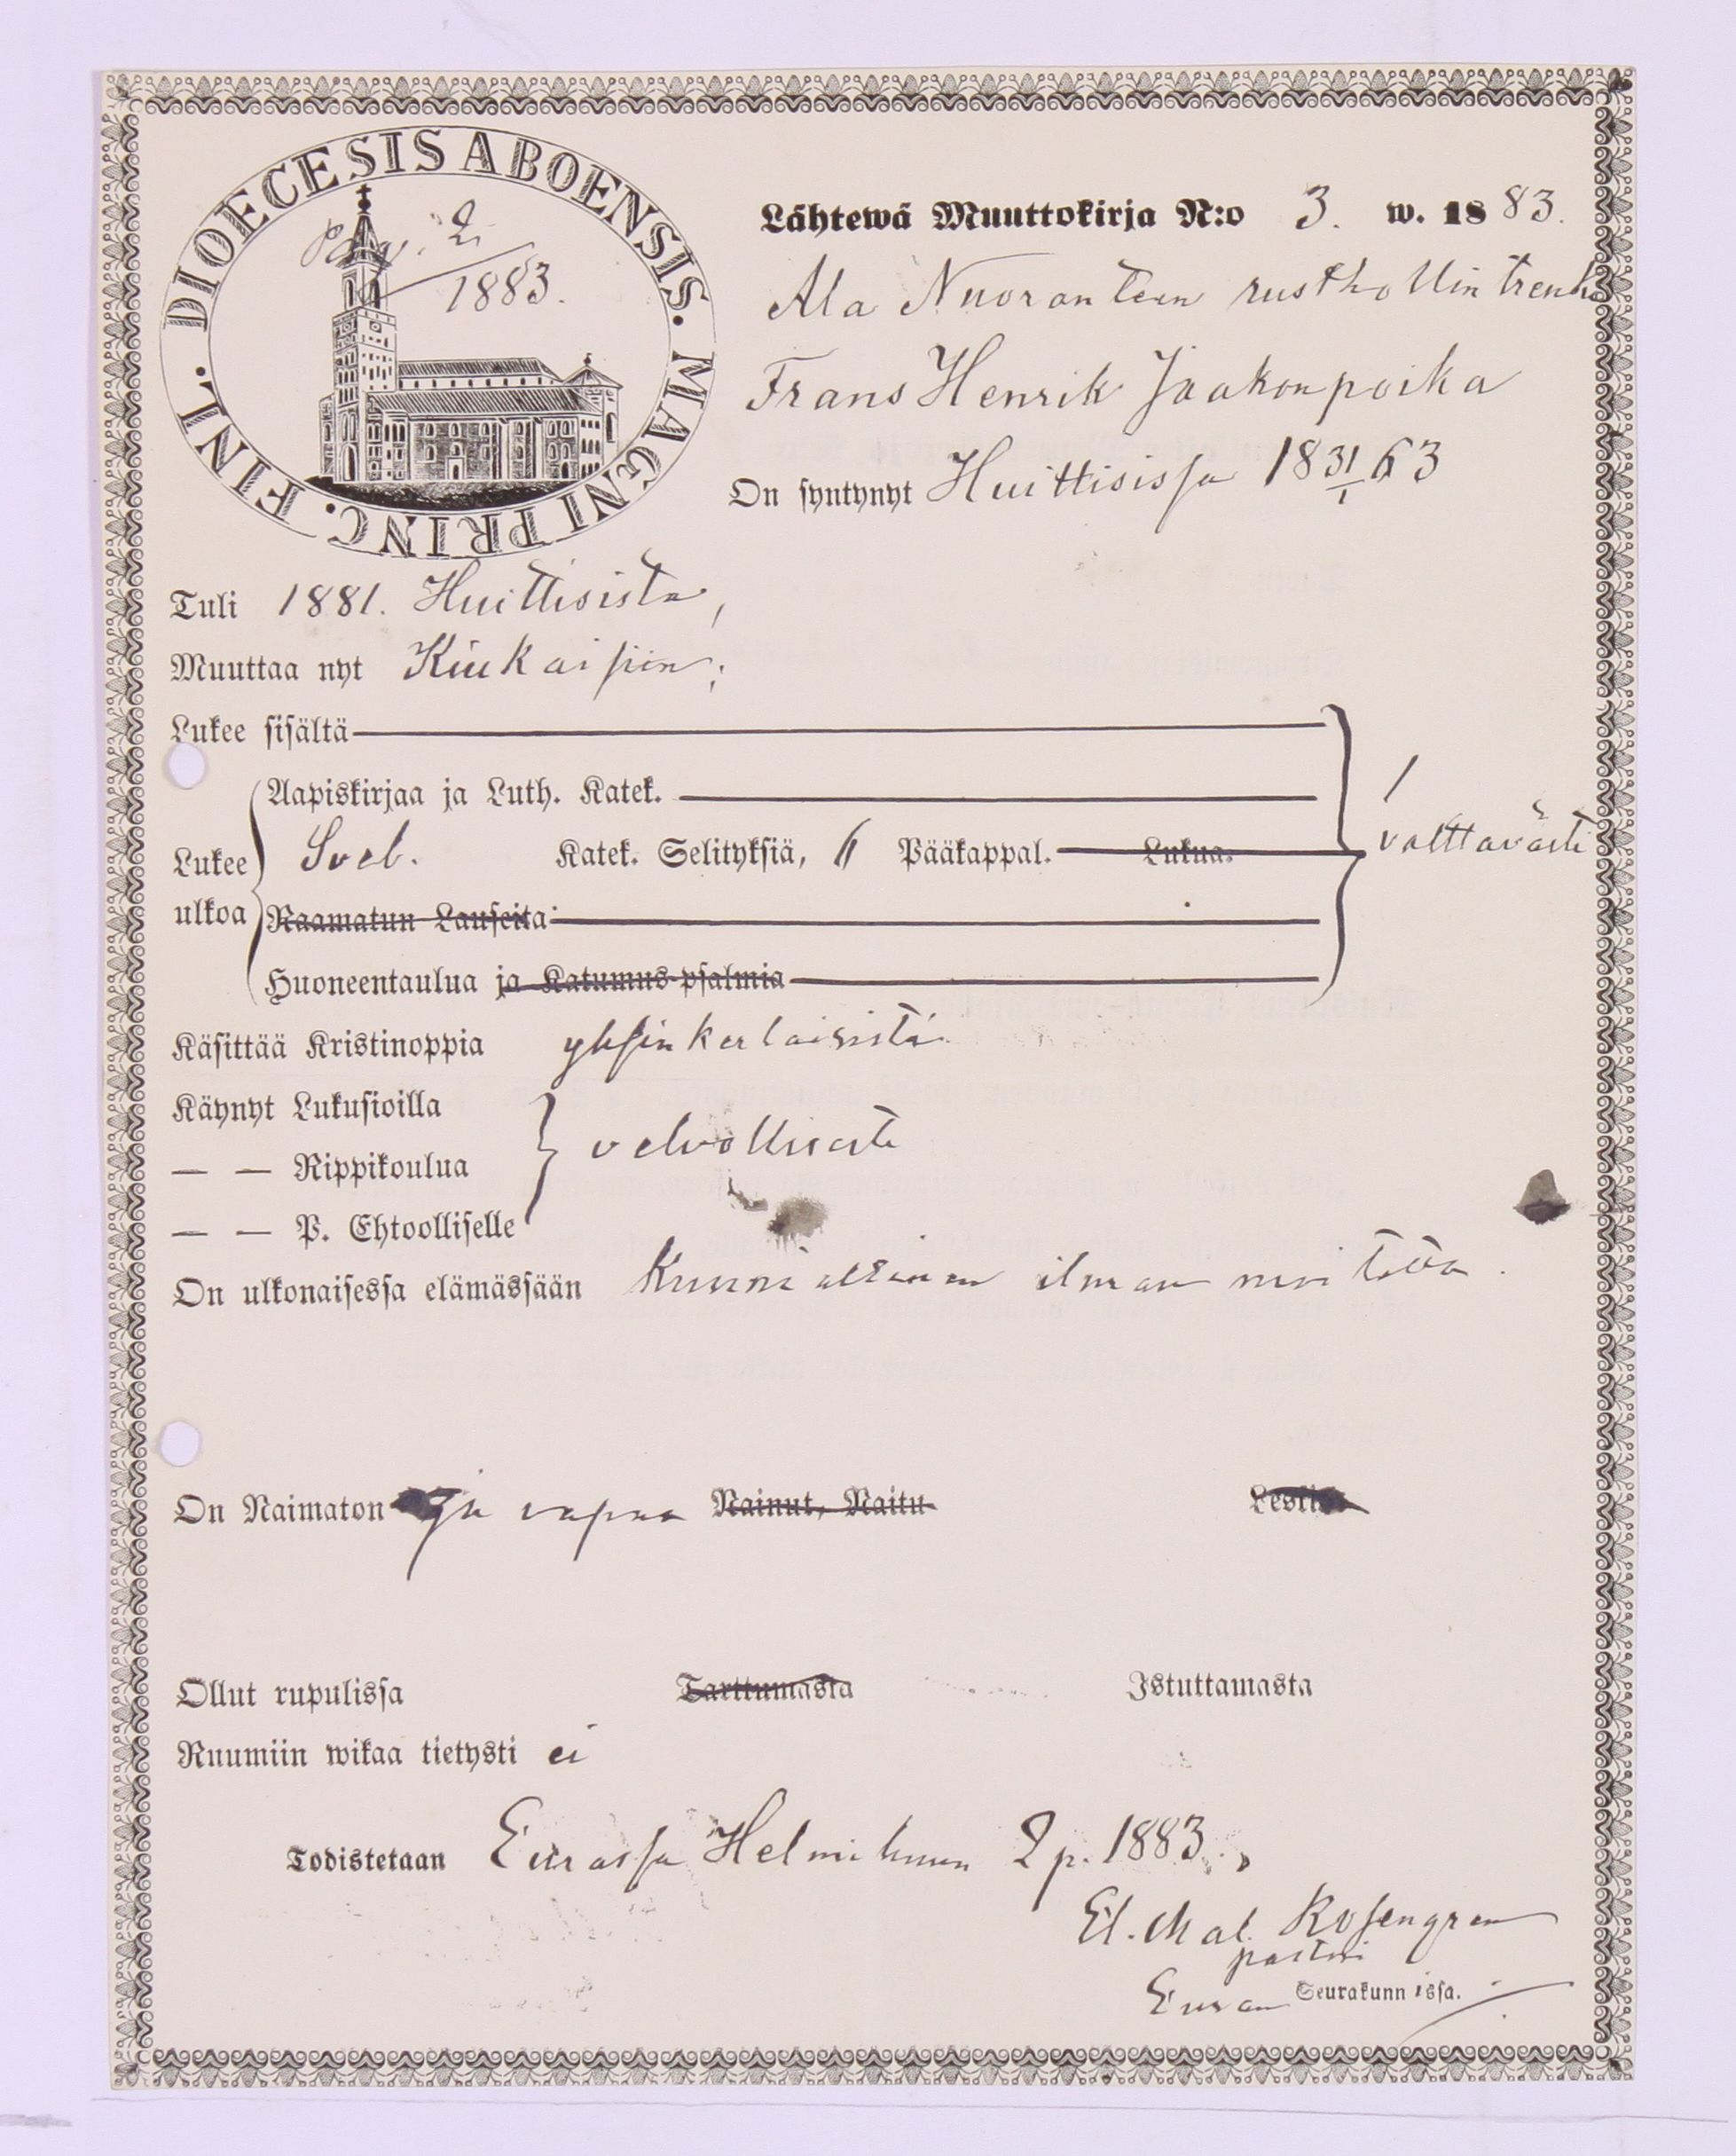 DIOECESIS ABOENSIS. MAGNI PRINC. FINL.
2/1883.
Lähtewä Muuttokirja N:o 3. w. 1883.
Ala Nuoranteen rusthollin trenki
Frans Henrik Jaakonpoika
On syntynyt Huittisissa 18 31/1 63
Tuli 1881. Huittisista,
Muuttaa nyt Kiukaisiin;
Lukee sisältä
Aapiskirjaa ja Luth. Katek.
Lukee ulkoa Sveb. Katek. Selityksiä, 6 Pääkappal. Lukua.
valttavasti
Raamatun Lauseita
Huoneentaulua ja Katumus-psalmia
Käsittää Kristinoppia yksinkertaisista
Käynyt Lukusioilla
— — Rippikoulua velvollisesti
— — P. Ehtoolliselle
On ulkonaisessa elämässään Kunniallinen ilman moitetta.
On Naimaton ja vapaa Nainut, Naitu Leski
Ollut rupulissa Tarttumasta Istuttamasta
Ruumiin wikaa tietysti ei
Todistetaan Eurassa Helmikuun 2 p. 1883.
El. Mat. Rosengren
pastori
Euran Seurakunnissa.